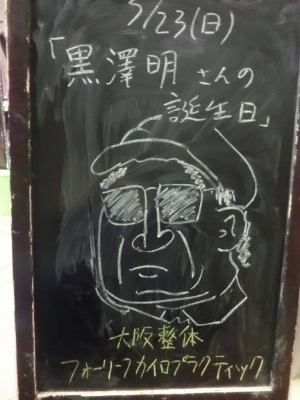 3/23(日)
「黒澤明さんの
誕生日」
大阪整体
フォーリーフカイロプラクティック